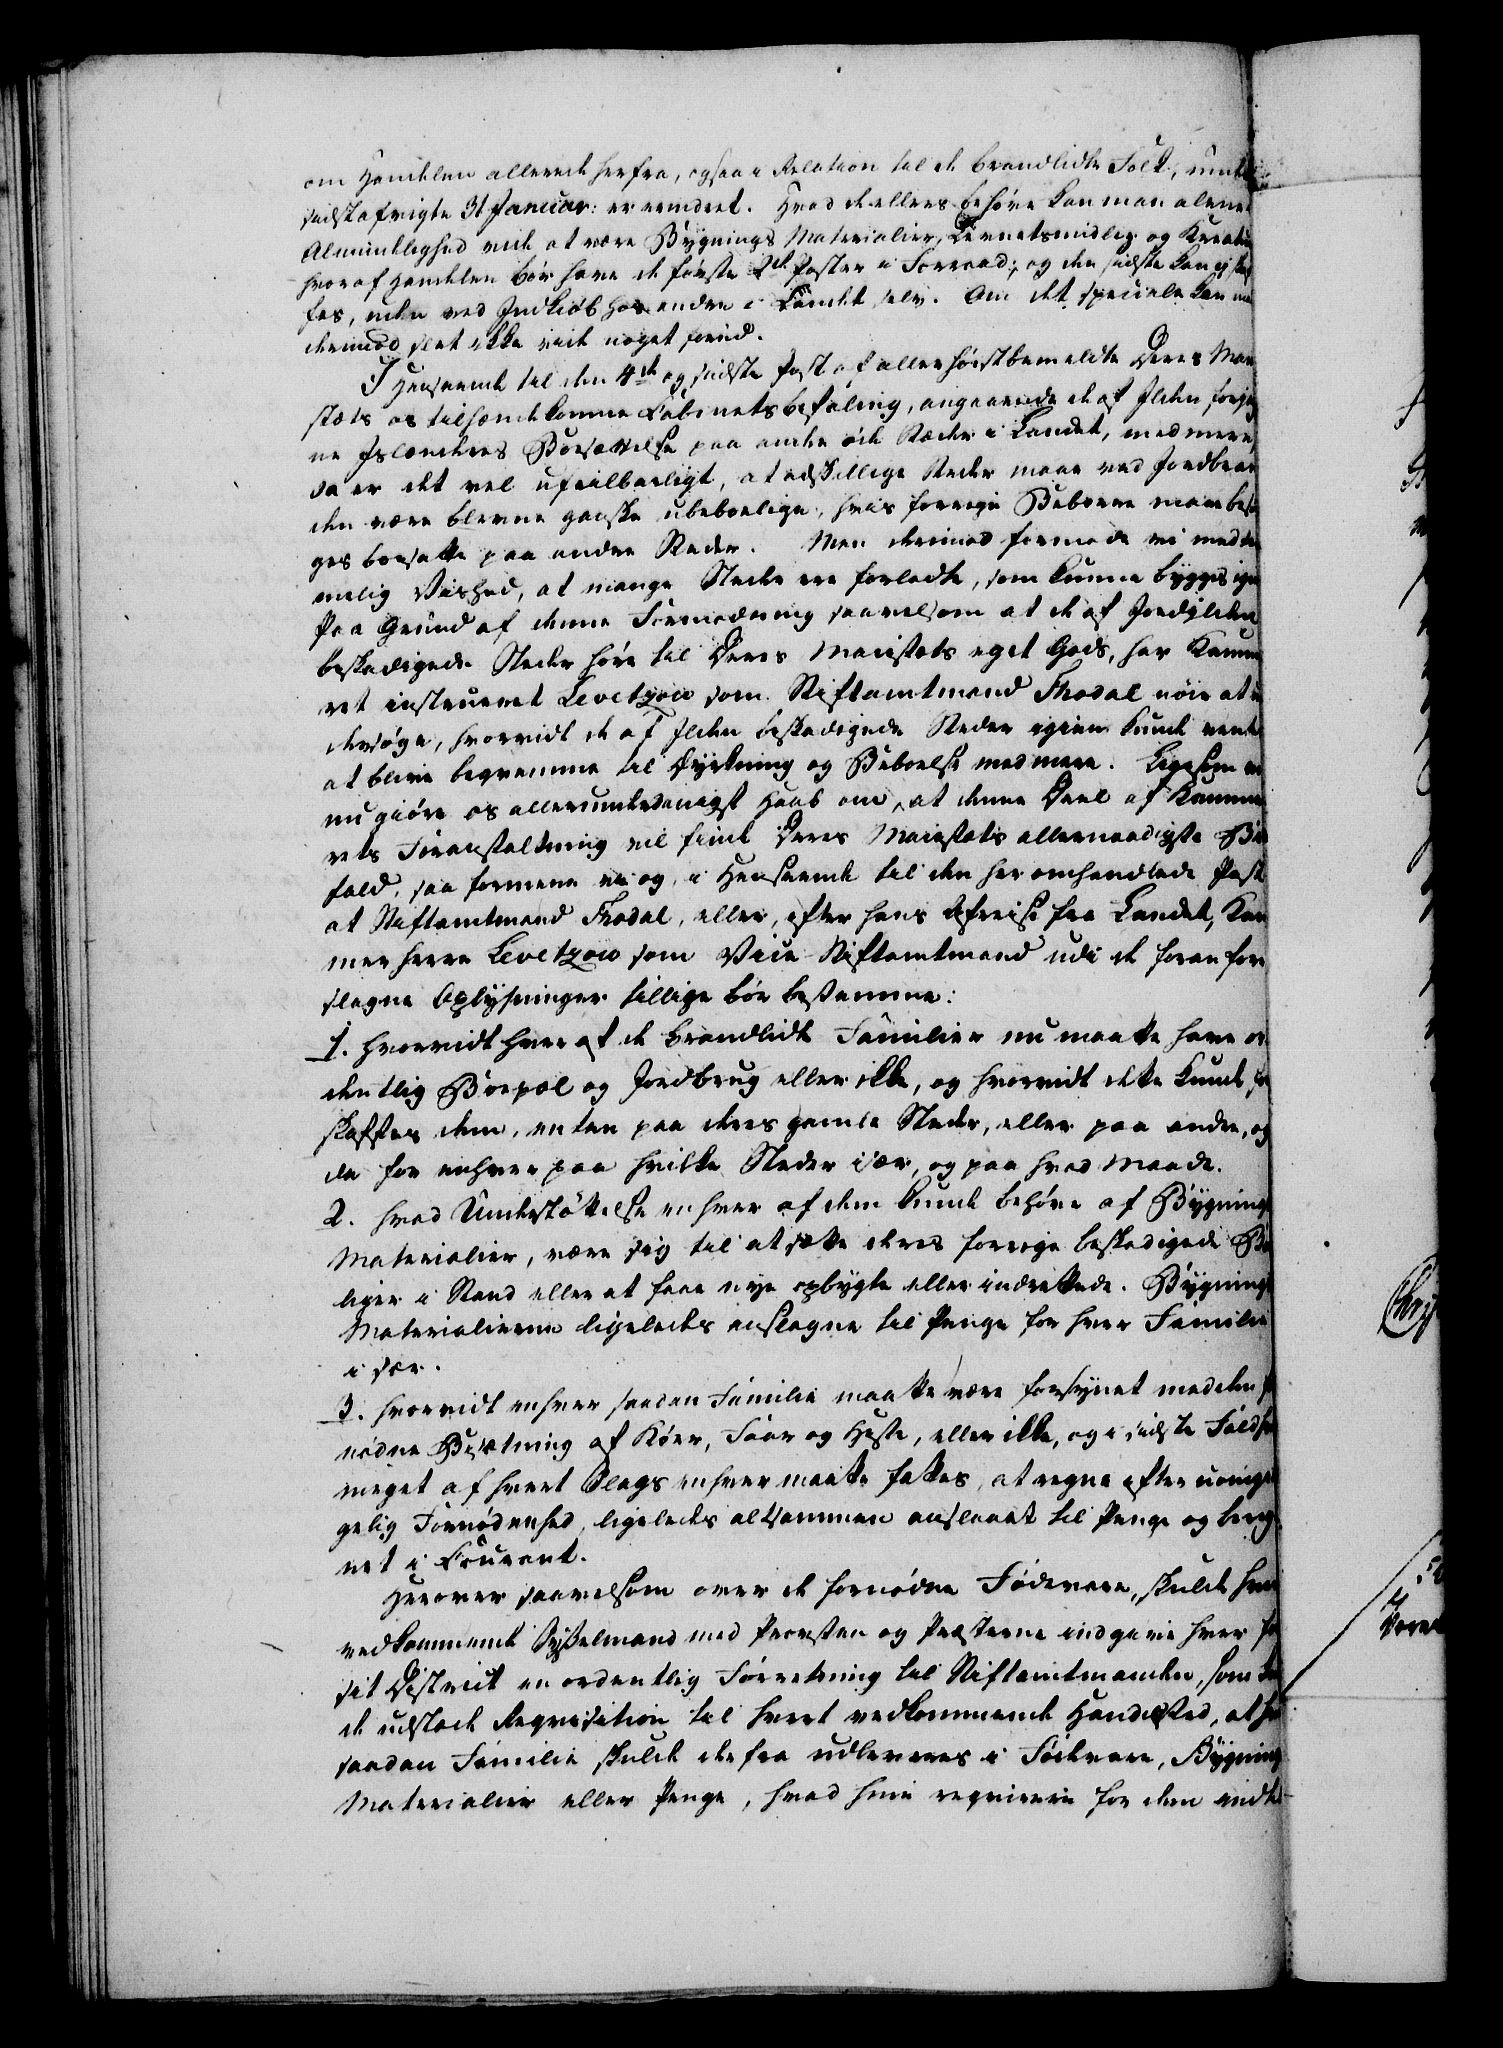 om Handelen allerede herfra, ogsaa i Relation til de brandlidte Folk, unde
sidstafvigte 31 Januar: er erindret. Hvad de ellers behøve kan man alene i
Almindelighed vide at være Bygnings Materialier, Levnetsmidler og Kreatu
hvoraf Handelen bør have de første 2de Poster i Forraad; og den sidste kan ej skaf
fes, uden ved Indkiøb hos andre i Landet selv. Om det speciele kan man
derimod slet ikke vide noget forud.
I Henseende til den 4de og sidste Post af allerhøistbemeldte Deres Maie
stæts os tilhændekomne Cabinetsbefaling, angaaende de af Ilden forjag
ne Islænderes Boesættelse paa andre øde Stæder i Landet, med mere,
da er det vel ufeilbarligt, at adskillige Steder maae ved Jordbran
den være blevne ganske ubeboelige, hvis forrige Beboere maae beso
ges boesatte paa andre Steder. Men derimod formode vi med te
melig Vished, at mange Steder ere forladte, som kunne bygges igen
Paa Grund af denne Formodning saavelsom at de af Jordilden
beskadigede Steder høre til Deres Maiestæts eget Gods, har Kamme
ret instrueret Levetzow som Stiftamtmand Thodal nøie at un
dersøge, hvorvidt de af Ilden beskadigede Steder igien kunde vente
at blive beqvemme til Dyrkning og Beboelse med mere. Ligesom vi
nu giøre os allerunderdanigst Haab om, at denne Deel af Kamme
rets Foranstaltning vil finde Deres Maiestæts allernaadigste Bi
fald, saa formene vi og, i Henseende til den her omhandlede Post
at Stiftamtmand Thodal, eller, efter hans Afreise fra Landet, Kam
merherre Levetzow som Vice Stiftamtmand udi de foran fore
slagne Oplysninger tillige bør bestemme:
1. Hvorvidt hver af de brandlidte Familier nu maatte have or
dentlig Boepæl og Jordbrug eller ikke, og hvorvidt dette kunde for
skaffes dem, enten paa deres gamle Steder, eller paa andre, og
da for enhver paa hvilke Steder især, og paa hvad Maade.
2. Hvad Understøttelse enhver af dem kunde behøve af Bygnings
Materialier, være sig til at sætte deres forrige beskadigede Bo
liger i Stand eller at faae nye opbygte eller indrettede. Bygnings
Materialierne ligeledes anslagne til Penge for hver Familie
i sær.
3. Hvorvidt enhver saadan Familie maatte være forsynet med den for
nødne Besætning af Køer, Faar og Heste, eller ikke, og i sidste Fald hvor
meget af hvert Slags enhver maatte fattes, at regne efter uomgæn
gelig Fornødenhed, ligeledes altsammen anslaaet til Penge og bereg
net i Courant.
Herover saavelsom over de fornødne Fødevare, skulde hver
vedkommende Sysselmand med Provsten og Præsterne indgive hver for
sit District en ordentlig Forretning til Stiftamtmanden, som kun
de udstæde Reqvisition til hvert vedkommende Handelsted, at hver
saadan Familie skulde derfra udleveres i Fødevare, Bygnings
Materialier eller Penge, hvad hiin reqvirere for dem endte